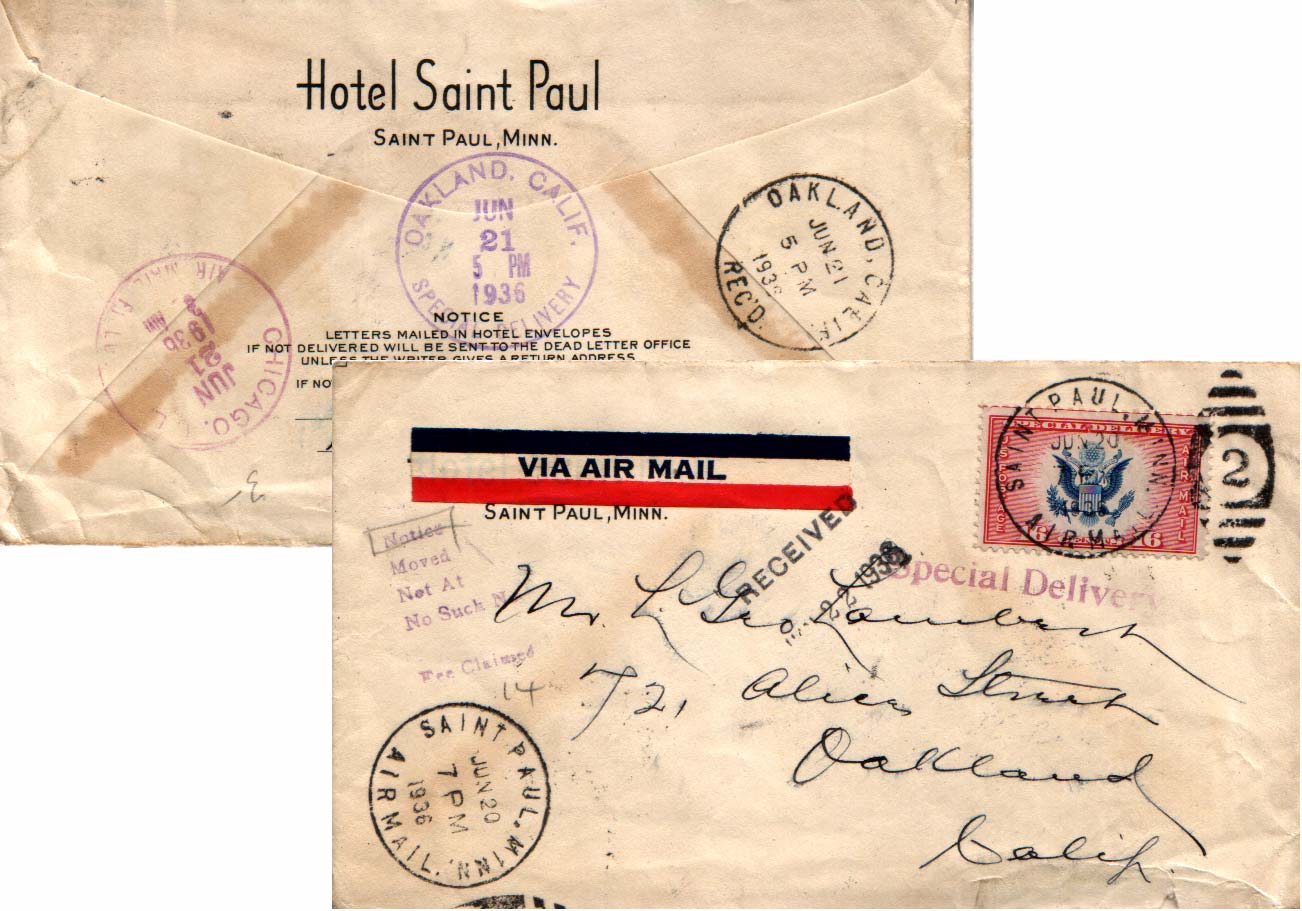 Hotel Saint Paul
SAINT PAUL, MINN.
OAKLAND, CALIF.
JUN
21
5 PM
1936
SPECIAL DELIVERY
OAKLAND, CALIF.
JUN 21
5 PM
1936
REC'D.
CHICAGO,
AIR MAIL
JUN
21
1936
NOTICE
LETTERS MAILED IN HOTEL ENVELOPES
IF NOT DELIVERED WILL BE SENT TO THE DEAD LETTER OFFICE
UNLESS THE WRITER GIVES A RETURN ADDRESS
IF NO
VIA AIR MAIL
SAINT PAUL, MINN.
SAINT PAUL, MINN.
JUN 20
AIRMAIL
2
SPECIAL DELIVERY
AIR MAIL
16
Special Delivery
RECEIVED
22 1936
Notice
Moved
Not At
No Such N
Fee Claimed
14
Mr. L. Geo. Lambert
721 Alice Street
Oakland
Calif.
SAINT PAUL, MINN.
JUN 20
7 PM
1936
AIRMAIL